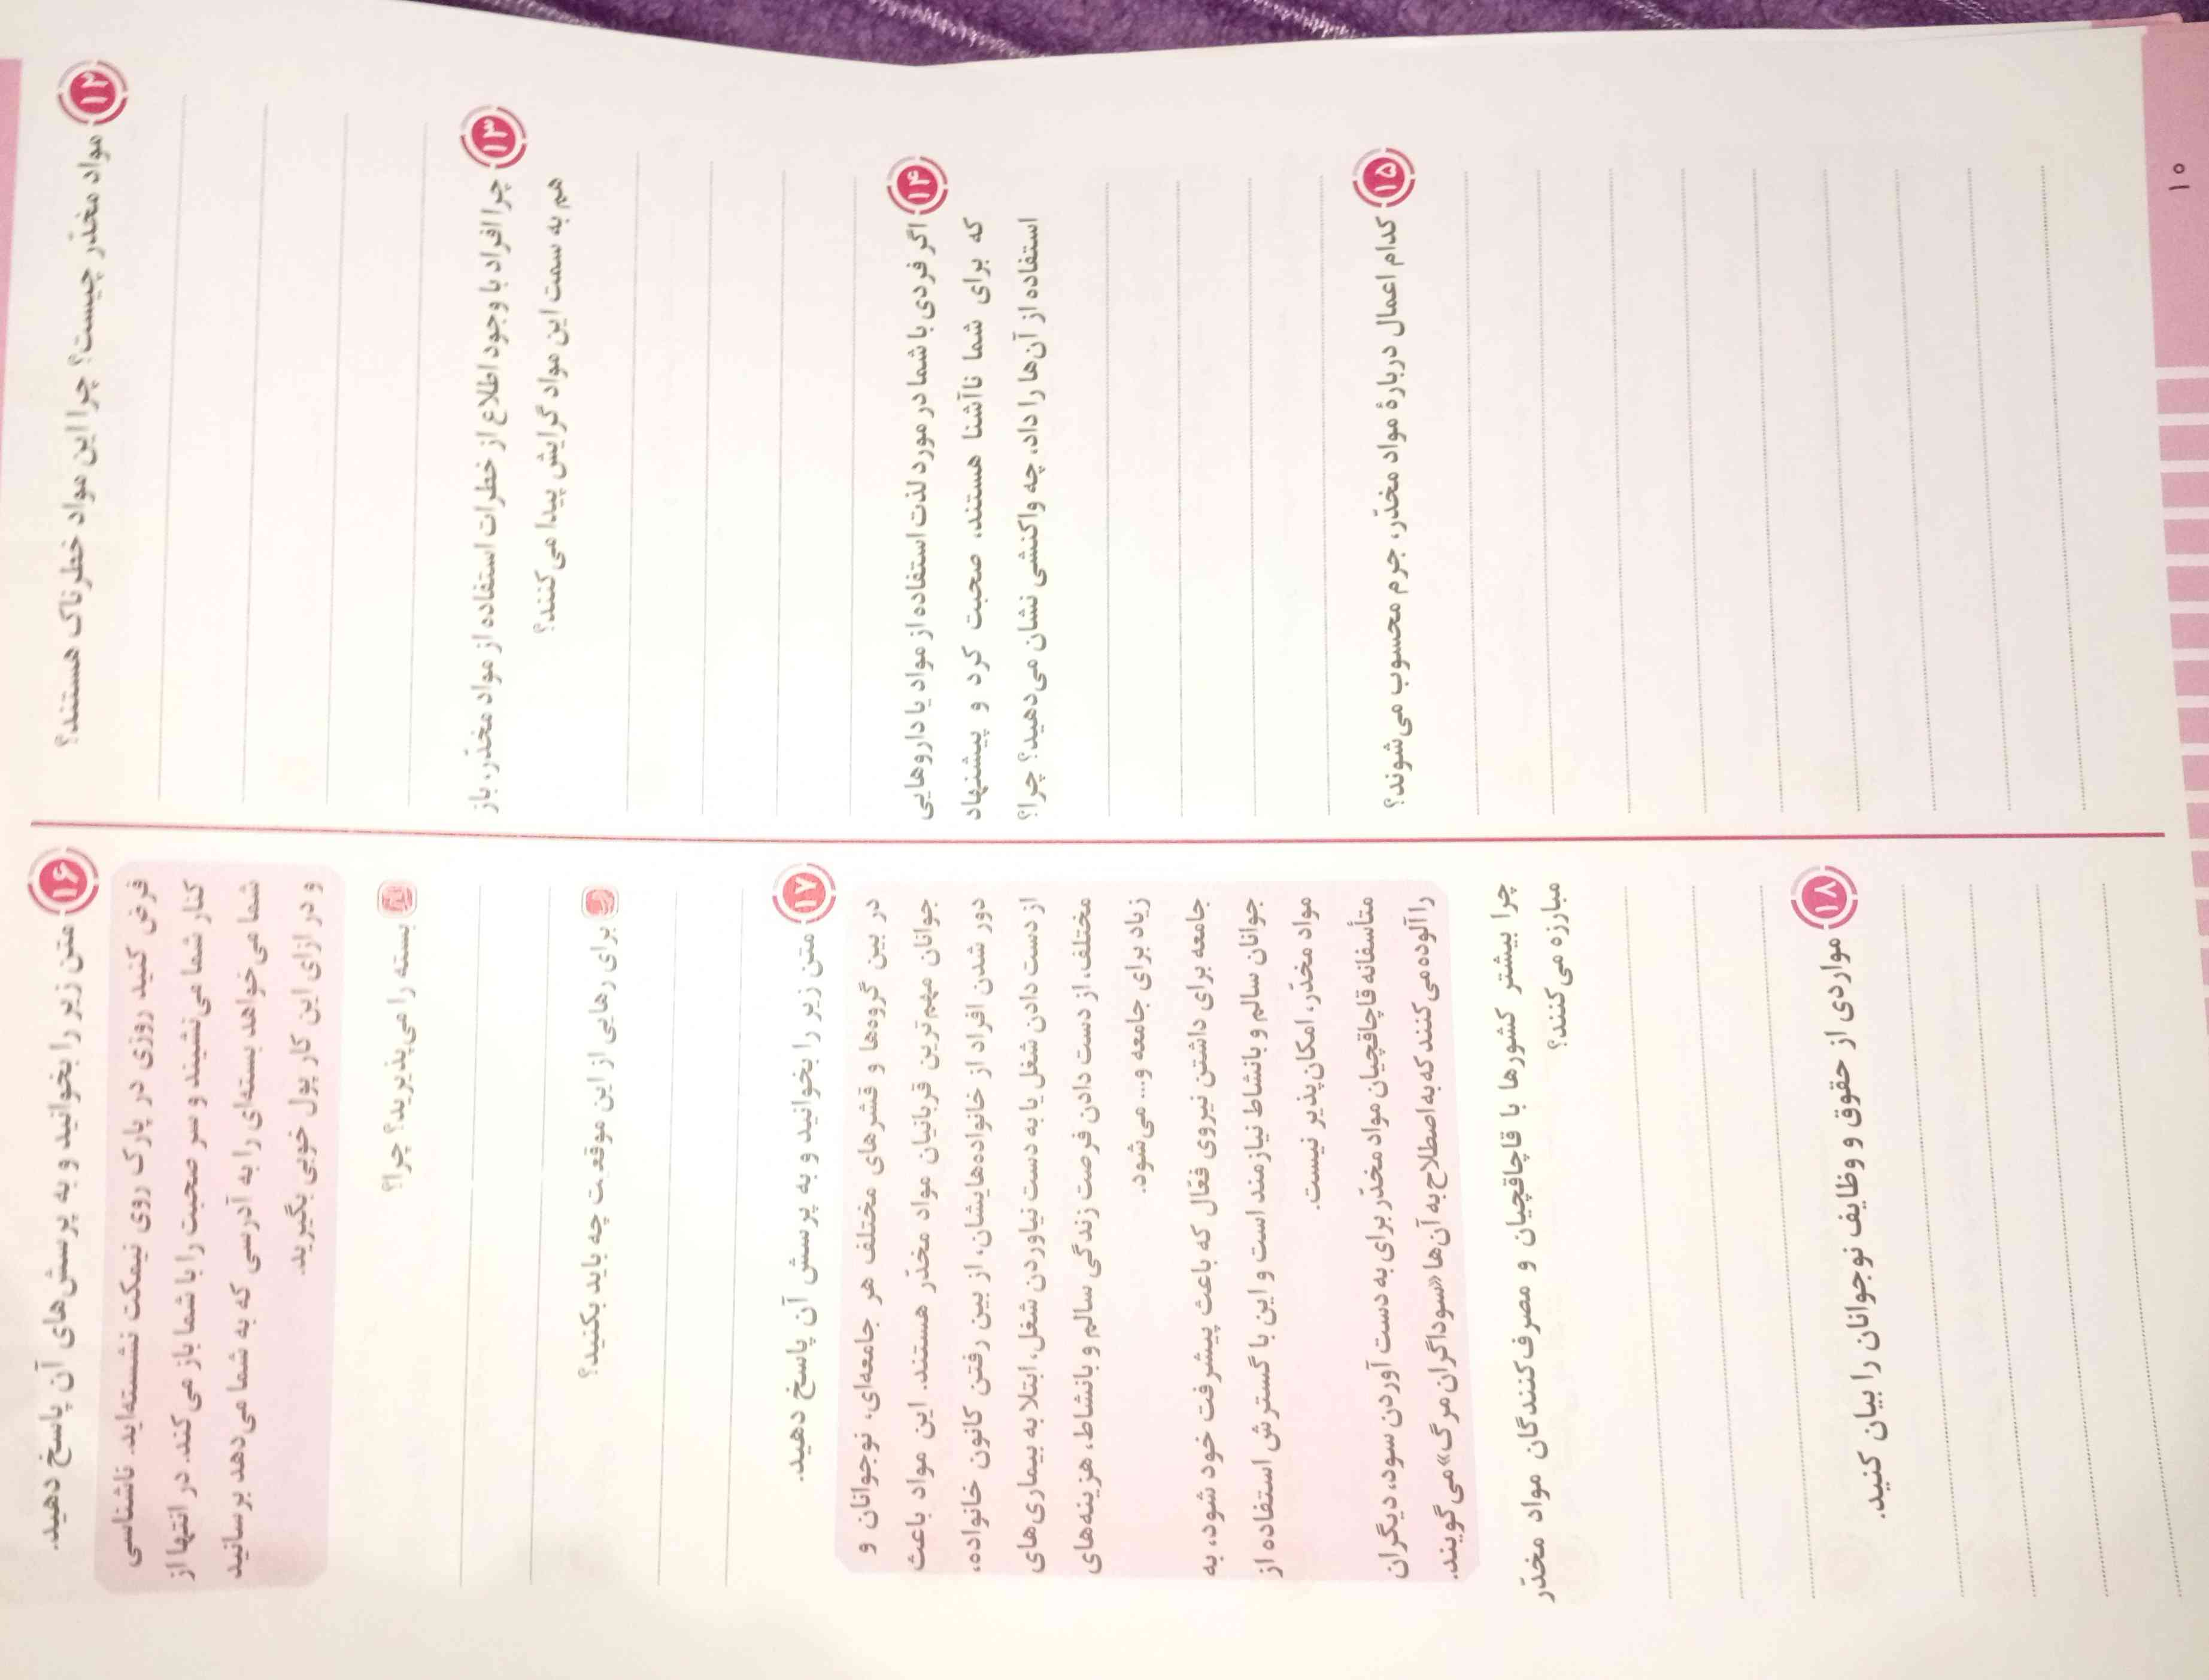 ۱۲ مواد مخدّر چیست؟ چرا این مواد خطرناک هستند؟
۱۳ چرا افراد با وجود اطلاع از خطرات استفاده از مواد مخدّر، باز
هم به سمت این مواد گرایش پیدا می‌کنند؟
۱۴ اگر فردی با شما در مورد لذت استفاده از مواد یا داروهایی
که برای شما ناآشنا هستند، صحبت کرد و پیشنهاد
استفاده از آن‌ها را داد، چه واکنشی نشان می‌دهید؟ چرا؟
۱۵ کدام اعمال دربارهٔ مواد مخدّر، جرم محسوب می‌شوند؟
۱۶ متن زیر را بخوانید و به پرسش‌های آن پاسخ دهید.
فرض کنید روزی در پارک روی نیمکت نشسته‌اید. ناشناسی
کنار شما می‌نشیند و سر صحبت را با شما باز می‌کند. در انتها از
شما می‌خواهد بسته‌ای را به آدرسی که به شما می‌دهد برسانید
و در ازای این کار پول خوبی بگیرید.
بسته را می‌پذیرید؟ چرا؟
ب برای رهایی از این موقعیت چه باید بکنید؟
۱۷ متن زیر را بخوانید و به پرسش آن پاسخ دهید.
در بین گروه‌ها و قشرهای مختلف هر جامعه‌ای، نوجوانان و
جوانان مهم‌ترین قربانیان مواد مخدّر هستند. این مواد باعث
دور شدن افراد از خانواده‌هایشان، از بین رفتن کانون خانواده،
از دست دادن شغل یا به دست نیاوردن شغل، ابتلا به بیماری‌های
مختلف، از دست دادن فرصت زندگی سالم و بانشاط، هزینه‌های
زیاد برای جامعه و... می‌شود.
جامعه برای داشتن نیروی فعّال که باعث پیشرفت خود شود، به
جوانان سالم و بانشاط نیازمند است و این با گسترش استفاده از
مواد مخدّر، امکان‌پذیر نیست.
متأسفانه قاچاقچیان مواد مخدّر برای به دست آوردن سود، دیگران
را آلوده می‌کنند که به اصطلاح به آن‌ها «سوداگران مرگ» می‌گویند.
چرا بیشتر کشورها با قاچاقچیان و مصرف‌کنندگان مواد مخدّر
مبارزه می‌کنند؟
۱۸ مواردی از حقوق و وظایف نوجوانان را بیان کنید.
۱۰